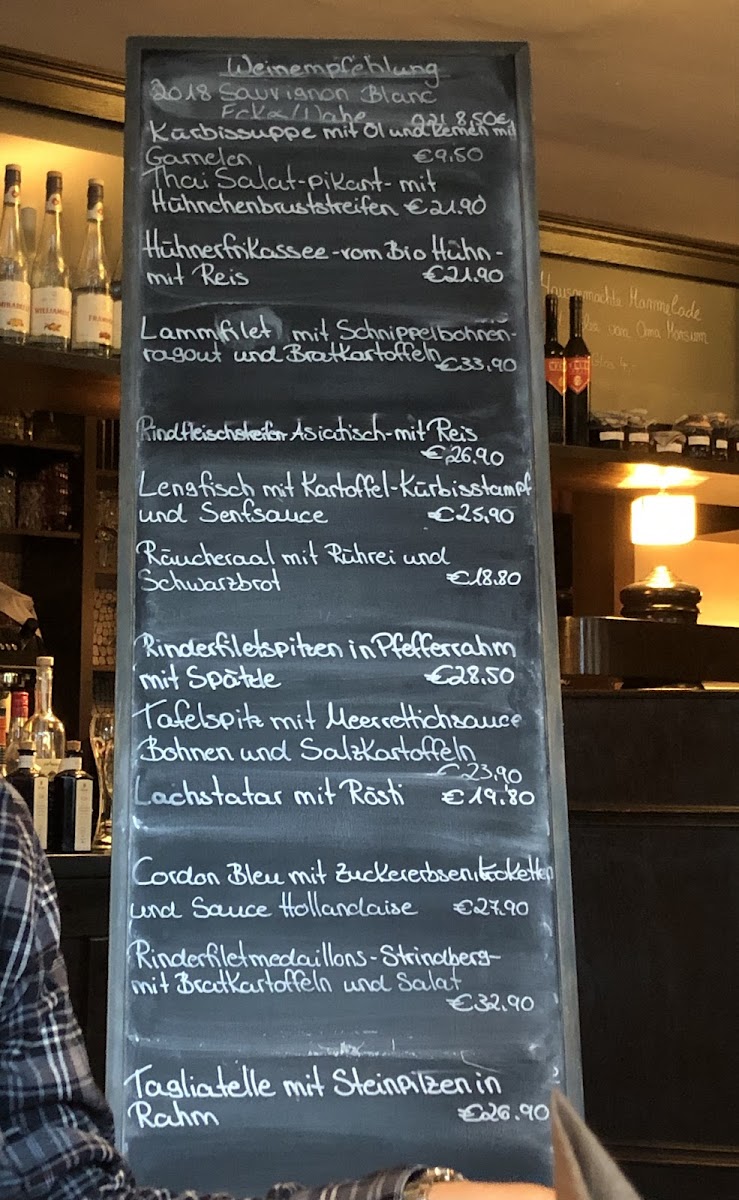 Weinempfehlung
2018 Sauvignon Blanc
0,2l 8,50€
Kürbissuppe mit Öl und Kernen mit
Garnelen €9.50
Thai Salat-pikant-mit
Hühnchenbruststreifen €21.90
Hühnerfrikassee-vom Bio Huhn-
mit Reis €21.90
Lammfilet mit Schnippelbohnen-
ragout und Bratkartoffeln €33,90
Rindfleischstreifen Asiatisch-mit Reis
€26.90
Lengfisch mit Kartoffel-Kürbisstampf
und Senfsauce €25,90
Räucheraal mit Rührei und
Schwarzbrot €18.80
Rinderfiletspitzen in Pfefferrahm
mit Spätzle €28.50
Tafelspitz mit Meerrettichsauce
Bohnen und Salzkartoffeln
€23,90
Lachstatar mit Rösti €19.80
Cordon Bleu mit Zuckererbsen, Kroketten
und Sauce Hollandaise €27.90
Rinderfiletmedaillons-Strindberg-
mit Bratkartoffeln und Salat
€32,90
Tagliatelle mit Steinpilzen in
Rahm €26.90
Hausgemachte Marmelade
von Oma Monsum
WILLIAMS